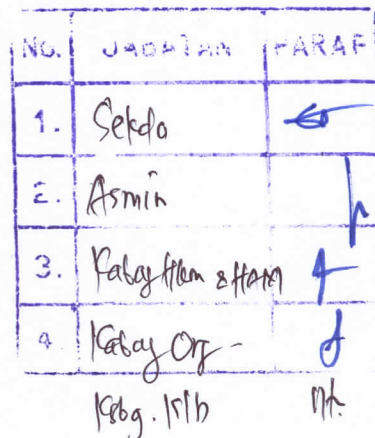 NO. JABATAN PARAF
1. Sekda
2. Asmin
3. Kabag Hkm & HAM
4. Kabag Org -
Kbg.